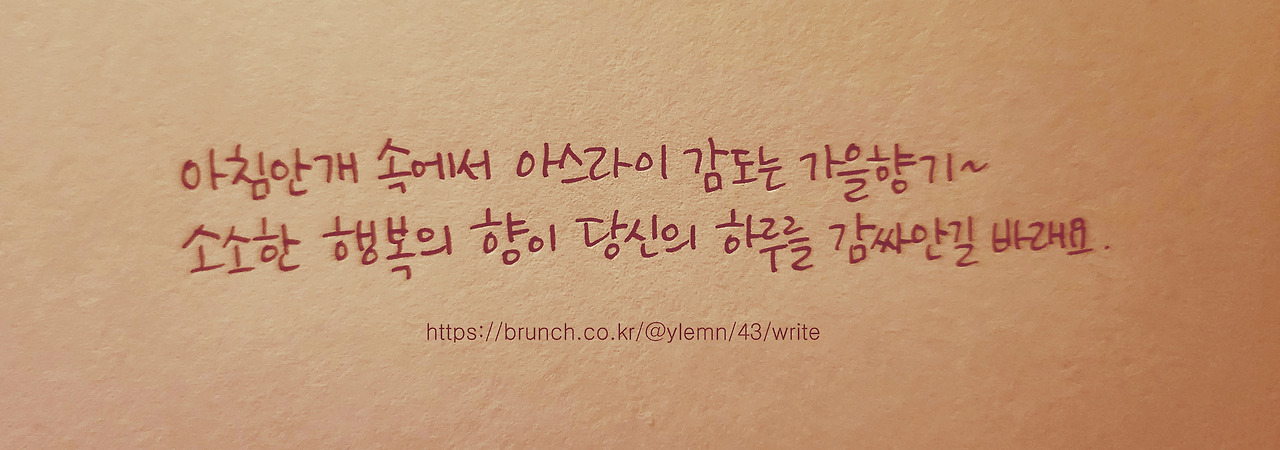 아침안개 속에서 아스라이 감도는 가을향기~
소소한 행복의 향이 당신의 하루를 감싸안길 바래요.
https://brunch.co.kr/@ylemn/43/write